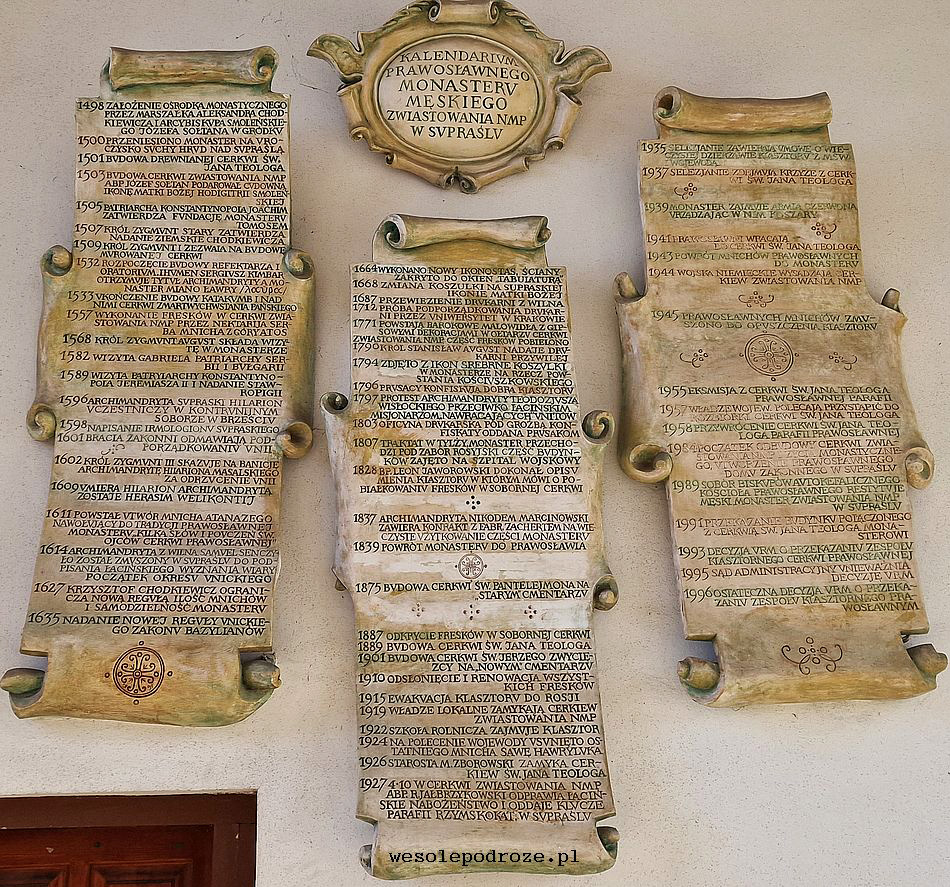 KALENDARIVM
PRAWOSŁAWNEGO
MONASTERV
MĘSKIEGO
ZWIASTOWANIA NMP
W SVPRAŚLV
1498 ZAŁOŻENIE OŚRODKA MONASTYCZNEGO
PRZEZ MARSZAŁKA ALEKSANDRA CHOD-
KIEWICZA I ARCYBISKVPA SMOLEŃSKIE-
GO JÓZEFA SOŁTANA W GRÓDKV
1500 PRZENIESIONO MONASTER NA VRO-
CZYSKO SVCHY HRVD NAD SVPRAŚLĄ
1501 BVDOWA DREWNIANEJ CERKWI ŚW.
JANA TEOLOGA
1503 BVDOWA CERKWI ZWIASTOWANIA NMP
ABP JÓZEF SOŁTAN PODAROWAŁ CVDOWNĄ
IKONĘ MATKI BOŻEJ HODIGITRII SMOLEŃ-
SKIEJ
1505 PATRIARCHA KONSTANTYNOPOLA JOACHIM
ZATWIERDZA FVNDACJĘ MONASTERV
TOMOSEM
1507 KRÓL ZYGMVNT STARY ZATWIERDZA
NADANIE ZIEMSKIE CHODKIEWICZA
1509 KRÓL ZYGMVNT I ZEZWALA NA BVDOWĘ
MVROWANEJ CERKWI
1532 ROZPOCZĘCIE BVDOWY REFEKTARZA I
ORATORIVM. IHVMEN SERGIVSZ KIMBAR
OTRZYMVJE TYTVŁ ARCHIMANDRYTY A MO-
NASTER MIANO ŁAWRY
1533 VKOŃCZENIE BVDOWY KATAKVMB I NAD
NIMI CERKWI ZMARTWYCHWSTANIA PAŃSKIEGO
1557 WYKONANIE FRESKÓW W CERKWI ZWIA-
STOWANIA NMP PRZEZ NEKTARIJA SER-
BA MNICHA Z GÓRY ATOS
1568 KRÓL ZYGMVNT AVGVST SKŁADA WIZY-
TĘ W MONASTERZE
1582 WIZYTA GABRIELA PATRIARCHY SER-
BII I BVŁGARII
1589 WIZYTA PATRYIARCHY KONSTANTYNO-
POLA JEREMIASZA II I NADANIE STAW-
ROPIGII
1596 ARCHIMANDRYTA SVPRASKI HILARION
VCZESTNICZY W KONTRVNIJNYM
SOBORZE W BRZEŚCIV
1598 NAPISANIE IRMOŁOGIONV SVPRASKIEGO
1601 BRACIA ZAKONNI ODMAWIAJĄ POD-
PORZĄDKOWANIV VNII
1602 KRÓL ZYGMVNT III SKAZVJE NA BANICJĘ
ARCHIMANDRYTĘ HILARIONA MASALSKIEGO
ZA ODRZVCENIE VNII
1609 VMIERA HILARION ARCHIMANDRYTĄ
ZOSTAJE HERASIM WELIKONTIJ
1611 POWSTAŁ VTWÓR MNICHA ATANAZEGO
NAWOŁVJĄCY DO TRADYCJI PRAWOSŁAWNEJ
MONASTERV „KILKA SŁÓW I POVCZEŃ ŚW.
OJCÓW CERKWI PRAWOSŁAWNEJ"
1614 ARCHIMANDRYTA Z WILNA SAMVEL SIEŃCZY-
ŁO ZOSTAŁ ZMVSZONY W SVPRAŚLV DO POD-
PISANIA ŁACIŃSKIEGO WYZNANIA WIARY
POCZĄTEK OKRESV VNICKIEGO
1627 KRZYSZTOF CHODKIEWICZ OGRANI-
CZA NOWĄ REGVŁĄ ILOŚĆ MNICHÓW
I SAMODZIELNOŚĆ MONASTERV
1635 NADANIE NOWEJ REGVŁY VNICKIE-
GO ZAKONV BAZYLIANÓW
1664 WYKONANO NOWY IKONOSTAS, ŚCIANY
ZAKRYTO DO OKIEN TABLATVRĄ
1668 ZMIANA KOSZVLKI NA SVPRASKIEJ
IKONIE MATKI BOŻEJ
1687 PRZEWIEZIENIE DRVKARNI Z WILNA
1712 PRÓBA PODPORZĄDKOWANIA DRVKAR-
NI PRZEZ VNIWERSYTET W KRAKOWIE
1771 POWSTAJĄ BAROKOWE MALOWIDŁA Z GIP-
SOWYMI DEKORACJAMI W GŁÓWNEJ CERKWI
ZWIASTOWANIA NMP. CZĘŚĆ FRESKÓW POBIELONO
1790 KRÓL STANISŁAW AVGVST NADAJE DRV-
KARNI PRZYWILEJ
1794 ZDJĘTO Z IKON SREBRNE KOSZVLKI
W MONASTERZE NA RZECZ POW-
STANIA KOŚCIVSZKOWSKIEGO
1796 PRVSACY KONFISKVJĄ DOBRA KLASZTORV
1797 PROTEST ARCHIMANDRYTY TEODOZJVSZA
WISŁOCKIEGO PRZECIWKO ŁACIŃSKIM
MISJONARZOM, NAWRACAJĄCYCH VNITÓW
1803 OFICYNA DRVKARSKA POD GROŹBĄ KON-
FISKATY ODDANA PRVSAKOM
1807 TRAKTAT W TYLŻY, MONASTER PRZECHO-
DZI POD ZABÓR ROSYJSKI CZĘŚĆ BVDYN-
KÓW ZAJĘTO NA SZPITAL WOJSKOWY
1828 BP LEON JAWOROWSKI DOKONAŁ OPISV
MIENIA KLASZTORV W KTÓRYM MÓWI O PO-
BIAŁKOWANIV FRESKÓW W SOBORNEJ CERKWI
1837 ARCHIMANDRYTA NIKODEM MARCINOWSKI
ZAWIERA KONTRAKT Z FABR. ZACHERTEM NA WIE-
CZYSTE VŻYTKOWANIE CZĘŚCI MONASTERV
1839 POWRÓT MONASTERV DO PRAWOSŁAWIA
1875 BVDOWA CERKWI ŚW. PANTELEJMONA NA
„STARYM CMENTARZV
1887 ODKRYCIE FRESKÓW W SOBORNEJ CERKWI
1889 BVDOWA CERKWI ŚW. JANA TEOLOGA
1901 BVDOWA CERKWI ŚW. JERZEGO ZWYCIĘ-
ZCY NA „NOWYM" CMENTARZV
1910 ODSŁONIĘCIE I RENOWACJA WSZYST-
KICH FRESKÓW
1915 EWAKVACJA KLASZTORV DO ROSJI
1919 WŁADZE LOKALNE ZAMYKAJĄ CERKIEW
ZWIASTOWANIA NMP
1922 SZKOŁA ROLNICZA ZAJMVJE KLASZTOR
1924 NA POLECENIE WOJEWODY VSVNIĘTO OS-
TATNIEGO MNICHA SAWĘ HAWRYLVKA
1926 STAROSTA M. ZBOROWSKI ZAMYKA CER-
KIEW ŚW. JANA TEOLOGA
1927 4·10 W CERKWI ZWIASTOWANIA NMP
ABP R. JAŁBRZYKOWSKI ODPRAWIA ŁACIŃ-
SKIE NABOŻEŃSTWO I ODDAJE KLVCZE
PARAFII RZYMSKOKAT. W SVPRAŚLV
1935 SELEZJANIE ZAWIERAJĄ VMOWĘ O WIE-
CZYSTE KLASZTORV
1937 SELEZJANIE ZDEJMVJĄ KRZYŻE Z CERK-
WI ŚW. JANA TEOLOGA
1939 MONASTER ZAJMVJE ARMIA CZERWONA
VRZĄDZAJĄC W NIM KOSZARY
1941 WRACAJĄ
DO CERKWI ŚW. JANA TEOLOGA
1943 POWRÓT MNICHÓW PRAWOSŁAWNYCH
DO MONASTERV
1944 WOJSKA NIEMIECKIE WYSADZAJĄ CER-
KIEW ZWIASTOWANIA NMP
1945 PRAWOSŁAWNYCH MNICHÓW ZMV-
SZONO DO OPVSZCZENIA KLASZTORV
1955 EKSMISJA Z CERKWI ŚW. JANA TEOLOGA
PRAWOSŁAWNEJ PARAFII
1957 WŁADZE WOJEW. POLECAJĄ PRZYSTĄPIĆ DO
CERKWI ŚW. JANA TEOLOGA
1958 PRZYWRÓCENIE CERKWI ŚW. JANA TEO-
LOGA PARAFII PRAWOSŁAWNEJ
1984 POCZĄTEK ODBVDOWY CERKWI ZWIA-
MONASTYCZNE-
GO, VTWORZENIE PRAWOSŁAWNEGO
DOMV ZAKONNEGO W SVPRAŚLV
1989 SOBÓR BISKVPÓW AVTOKEFALICZNEGO
KOŚCIOŁA PRAWOSŁAWNEGO
MĘSKI MONASTER ZWIASTOWANIA NMP
W SVPRAŚLV
1991 PRZEKAZANIE BVDYNKV POŁĄCZONEGO
Z CERKWIĄ ŚW. JANA TEOLOGA MONA-
STEROWI
1993 DECYZJA VRM O PRZEKAZANIV ZESPOŁV
KLASZTORNEGO CERKWI PRAWOSŁAWNEJ
1995 SĄD ADMINISTRACYJNY VNIEWAŻNIA
DECYZJĘ VRM
1996 OSTATECZNA DECYZJA VRM O PRZEKA-
ZANIV ZESPOŁV KLASZTORNEGO PRA-
WOSŁAWNYM
wesolepodroze.pl